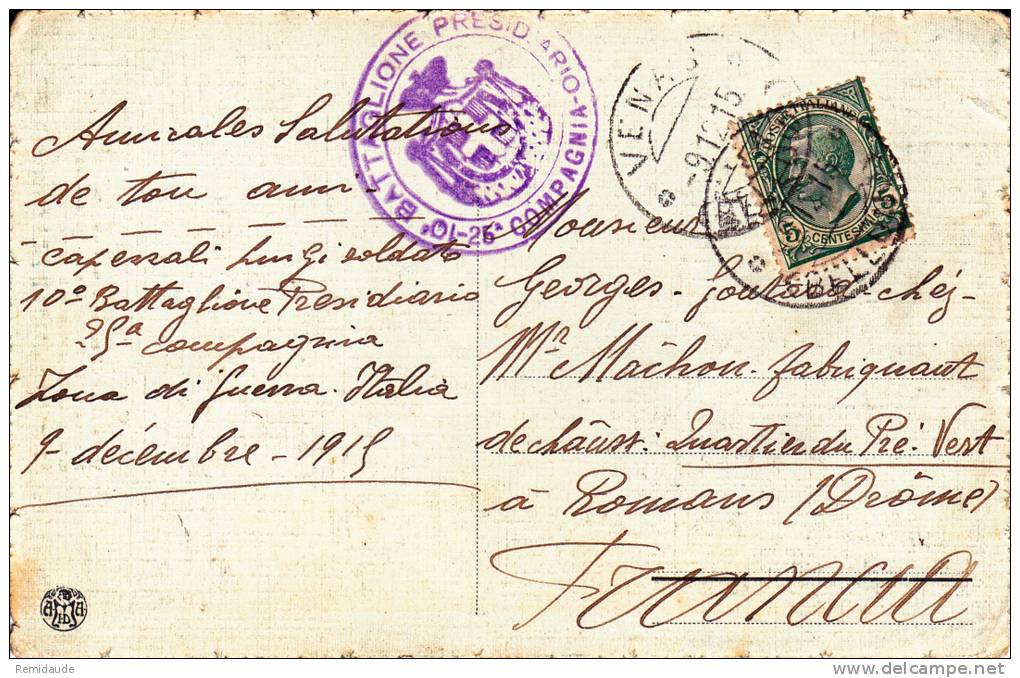 Amicales Salutations
de ton ami
Luigi soldato
10º Battaglione Presidiario
25ª compagnia
Zona di Guerra. Italia
9 - décembre - 1915
Monsieur
Georges - chéz -
Mr Mâchon - fabriquant
de chaûss: Quartier du Pré. Vert
à Romans (Drôme)
France
BATTAGLIONE PRESIDIARIO
10-25ª COMPAGNIA
VENA
-9.12.15
POSTE ITALIANE
5 CENTESIMI 5
Remidaude
delcampe.net